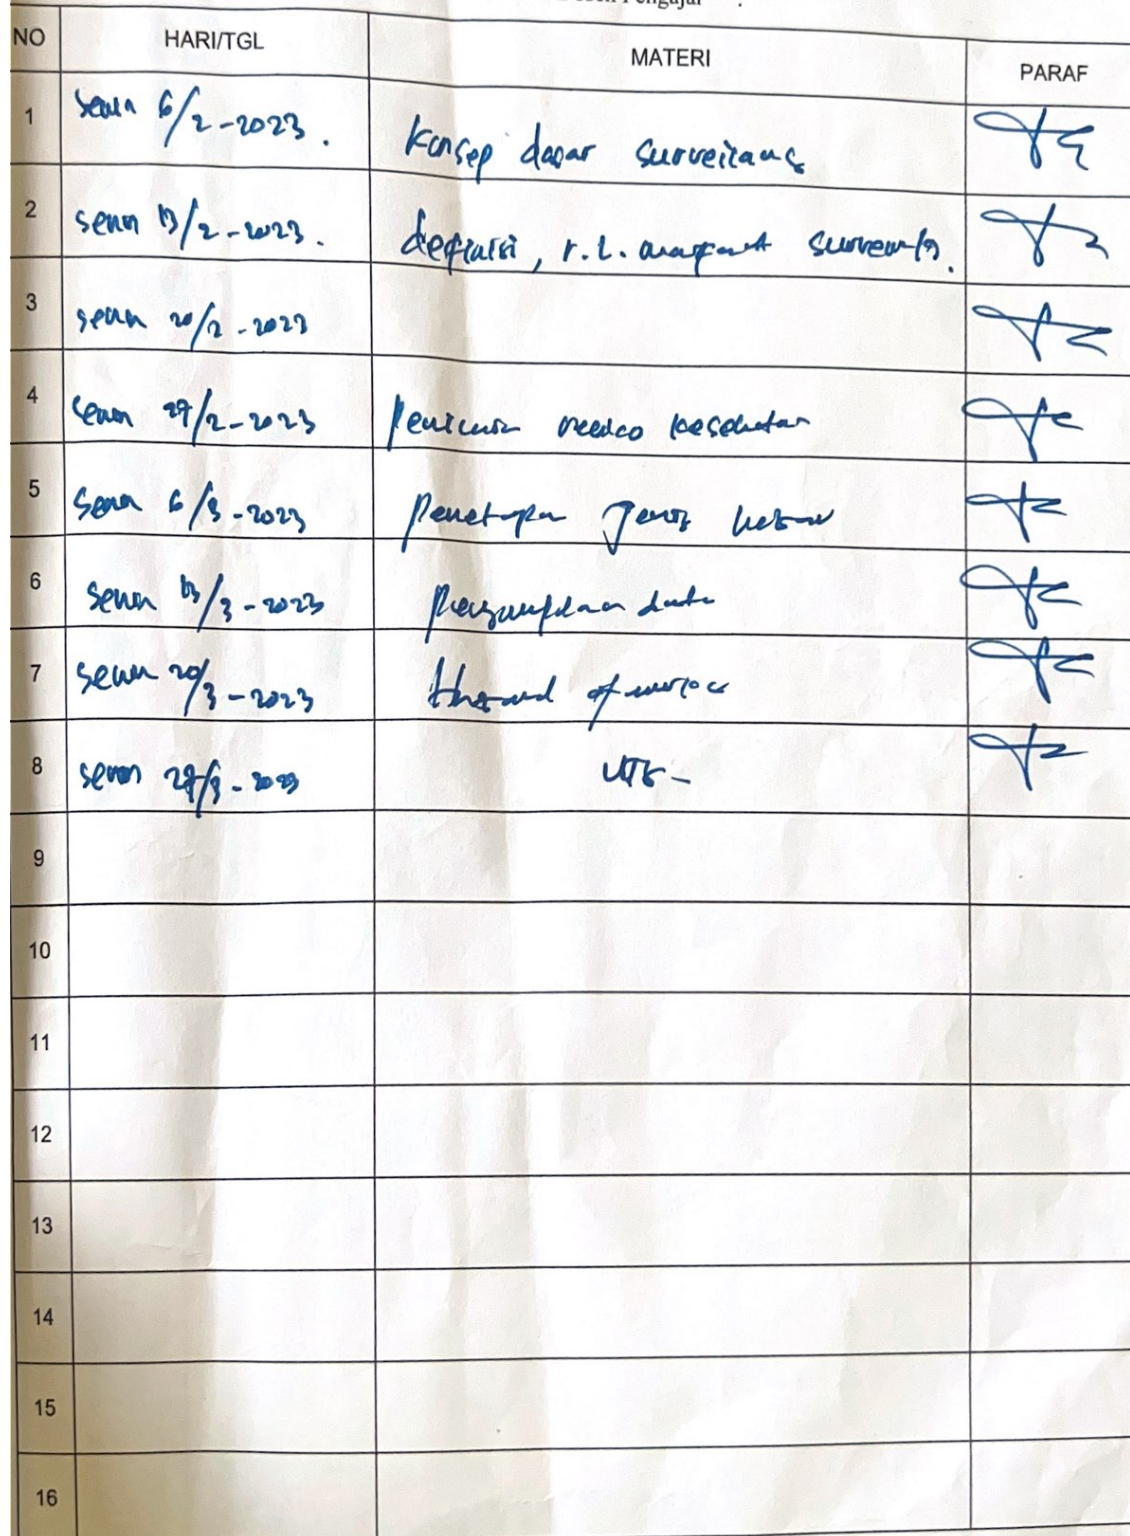 Pengajar :
NO HARI/TGL MATERI PARAF
1 senin 6/2-2023. Konsep dasar surveilans
2 senin 13/2-2023. definisi, r.l. surveilans.
3 senin 20/2-2023
4 senin 27/2-2023 kesehatan
5 senin 6/3-2023 penetapan jenis
6 senin 13/3-2023 pengumpulan data
7 senin 20/3-2023 of
8 senin 27/3-2023 UTS-
9
10
11
12
13
14
15
16